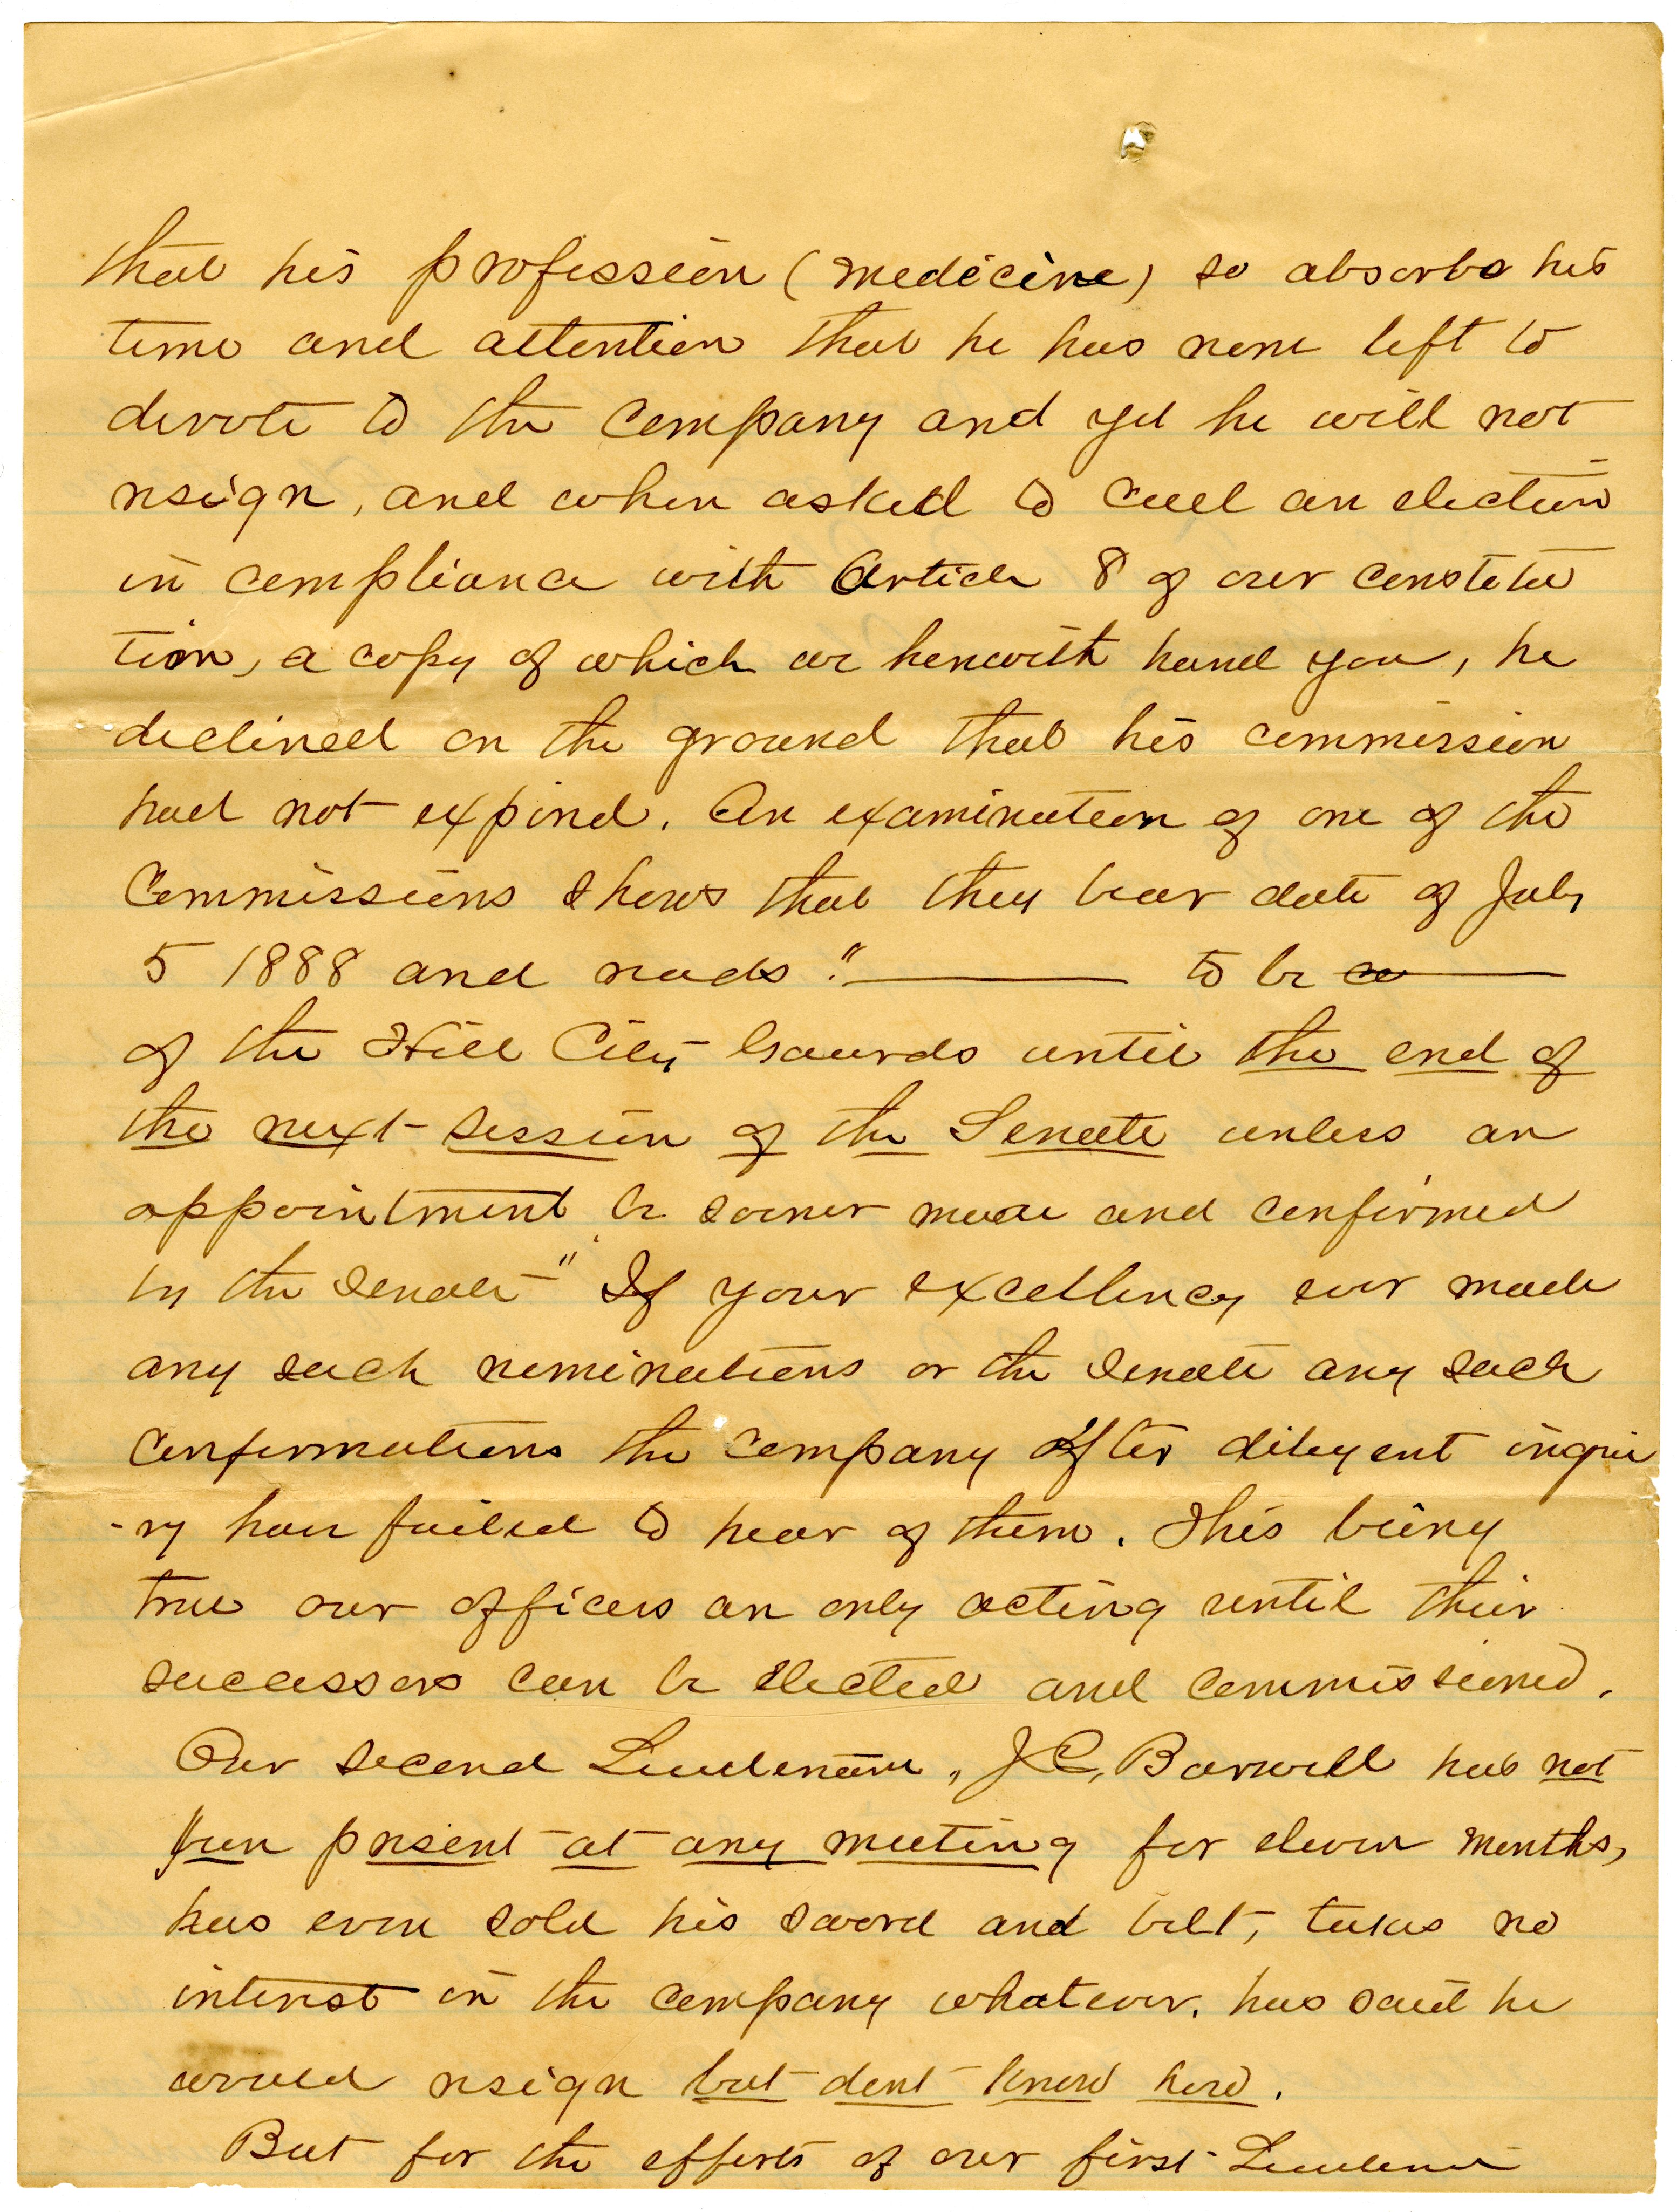 that his profession (medicine) so absorbs his
time and attention that he has none left to
devote to the Company and yet he will not
resign, and when asked to call an election
in compliance with Article 8 of our constitu
tion, a copy of which we herewith hand you, he
declined on the ground that his commission
had not expired. An examination of one of the
Commissions shows that they bear date of July
5 1888 and reads "——— to be a ———
of the Hill City Gaurds until the end of
the next session of the Senate unless an
appointment be sooner made and confirmed
by the Senate" If your excellency ever made
any such nominations or the Senate any such
confirmations the company after diligent inqui
-ry have failed to hear of them. This being
true our officers are only acting until their
successors can be elected and commissioned.
Our second Lieutenant, J. C, Barwell has not
been present at any meeting for eleven months,
has even sold his sword and belt, takes no
interest in the company whatever. has said he
would resign but dont know how.
But for the efforts of our first Lieutenant